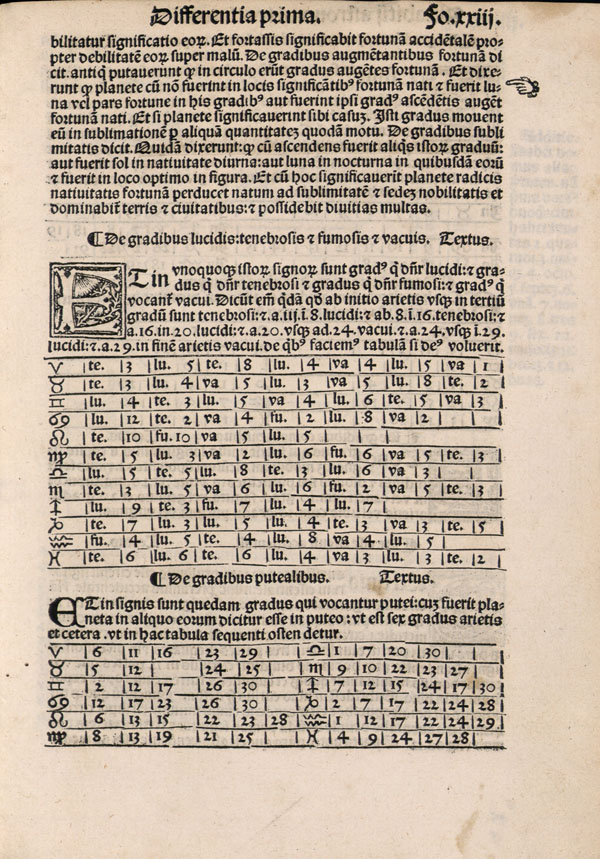 Differentia prima. Fo.xxiij.
bilitatur significatio eoꝝ. Et fortassis significabit fortunã accidẽtalẽ pro⸗
pter debilitatẽ eoꝝ super malũ. De gradibus augmẽtantibus fortunã di
cit. antiq̃ putauerunt ꝙ in circulo erũt gradus augẽtes fortunã. Et dixe⸗
runt ꝙ planete cũ nõ fuerint in locis significãtibꝰ fortunã nati ⁊ fuerit lu⸗
na vel pars fortune in his gradibꝰ aut fuerint ipsi gradꝰ ascẽdẽtis augẽt
fortunã nati. Et si planete significauerint sibi casuʒ. Isti gradus mouent
eũ in sublimationẽ ꝑ aliquã quantitateʒ quodã motu. De gradibus subli
mitatis dicit. Quidã dixerunt: ꝙ cũ ascendens fuerit aliq̃s istoꝝ graduũ:
aut fuerit sol in natiuitate diurna: aut luna in nocturna in quibusdã eorũ
⁊ fuerit in loco optimo in figura. Et cũ hoc significauerit planete radicis
natiuitatis fortunã perducet natum ad sublimitatẽ ⁊ sedeʒ nobilitatis et
dominabiẽ terris ⁊ ciuitatibus: ⁊ possidebit diuitias multas.
¶ De gradibus lucidis: tenebrosis ⁊ fumosis ⁊ vacuis. Textus.
ETin vnoquoqʒ istoꝝ signoꝝ sunt gradꝰ q̃ dñr lucidi: ⁊ gra⸗
dus q̃ dñr tenebrosi ⁊ gradus q̃ dñr fumosi: ⁊ gradꝰ q̃
vocant̃ vacui. Dicũt em̃ q̃dã qd̃ ab initio arietis vsqʒ in tertiũ
gradũ sunt tenebrosi: ⁊ .a. iij. ĩ. 8. lucidi: ⁊ ab. 8. ĩ. 16. tenebrosi: ⁊
a. 16. in. 20. lucidi: ⁊ .a. 20. vsqʒ ad. 24. vacui. ⁊ .a. 24. vsqʒ ĩ. 29.
lucidi: ⁊ .a. 29. in finẽ arietis vacui. de qꝰbꝰ faciemꝰ tabulã si deꝰ voluerit.
♈ |te. |3 |lu. |5 |te. |8 |lu. |4 |va |4 |lu. |5 |va |1
♉ |te. |3 |lu. |4 |va |5 |lu. |3 |va |5 |lu. |8 |te. |2
♊ |lu. |4 |te. |3 |lu. |5 |va |4 |lu. |6 |te. |5 |va |3
♋ |lu. |12 |te. |2 |va |4 |fu. |2 |lu. |8 |va |2
♌ |te. |10 |fu. |10 |va |5 |lu. |5
♍ |te. |5 |lu. |3 |va |2 |lu. |6 |fu. |6 |va |5 |te. |3
♎ |lu. |5 |te. |5 |lu. |8 |te. |3 |lu. |6 |va |3
♏ |te. |3 |lu. |5 |va |6 |lu. |6 |fu. |2 |va |5 |te. |3
♐ |lu. |9 |te. |3 |fu. |7 |lu. |4 |lu. |7
♑ |te. |7 |lu. |3 |lu. |5 |lu. |4 |te. |3 |va |3 |te. |5
♒ |fu. |4 |lu. |5 |te. |4 |lu. |8 |va |4 |lu. |5
♓ |te. |6 |lu. |6 |te. |6 |lu. |4 |va |3 |lu. |3 |te. |2
¶ De gradibus putealibus. Textus.
ETin signis sunt quedam gradus qui vocantur putei: cuʒ fuerit pla⸗
neta in aliquo eorum dicitur esse in puteo: vt est sex gradus arietis
et cetera. vt in hac tabula sequenti osten detur.
♈ |6 |11 |16 |23 |29 | ♎ |1 |7 |20 |30
♉ |5 |12 | |24 |25 | ♏ |9 |10 |22 |23 |27
♊ |2 |12 |17 |26 |30 | ♐ |7 |12 |15 |24 |17 |30
♋ |12 |17 |23 |26 |30 | ♑ |2 |7 |17 |22 |24 |28
♌ |6 |13 |15 |22 |23 |28 | ♒ |1 |12 |17 |22 |24 |29
♍ |8 |13 |19 |21 |25 | ♓ |4 |9 |24 |27 |28